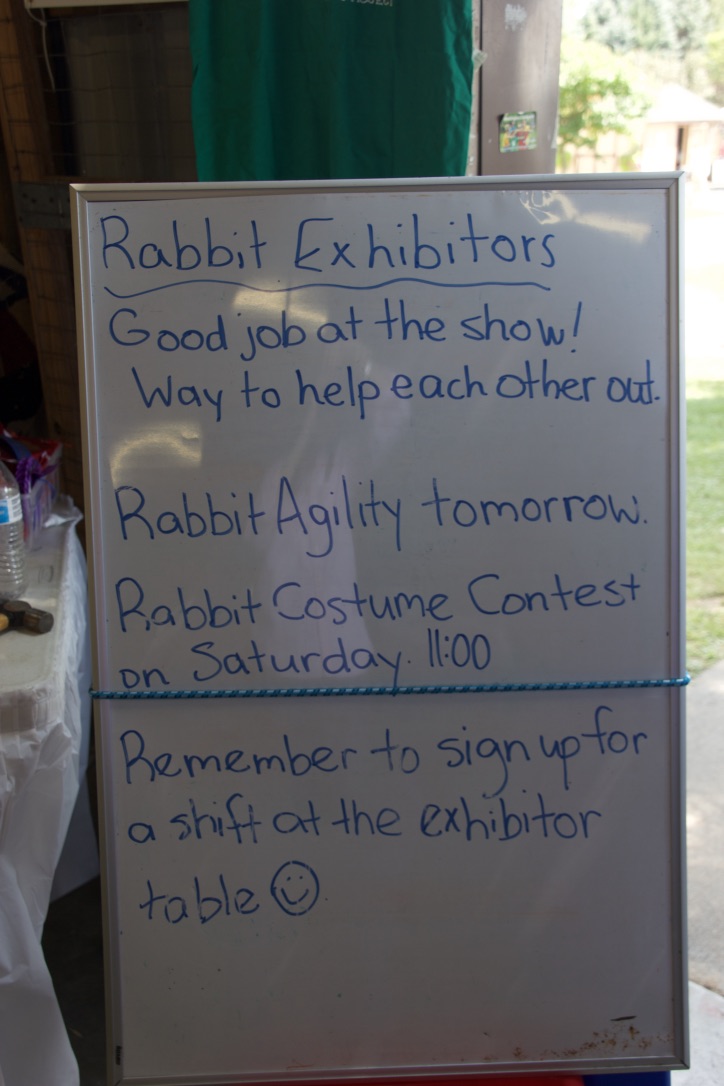 Rabbit Exhibitors
Good job at the show!
Way to help each other out.
Rabbit Agility tomorrow.
Rabbit Costume Contest
on Saturday. 11:00
Remember to sign up for
a shift at the exhibitor
table ☺